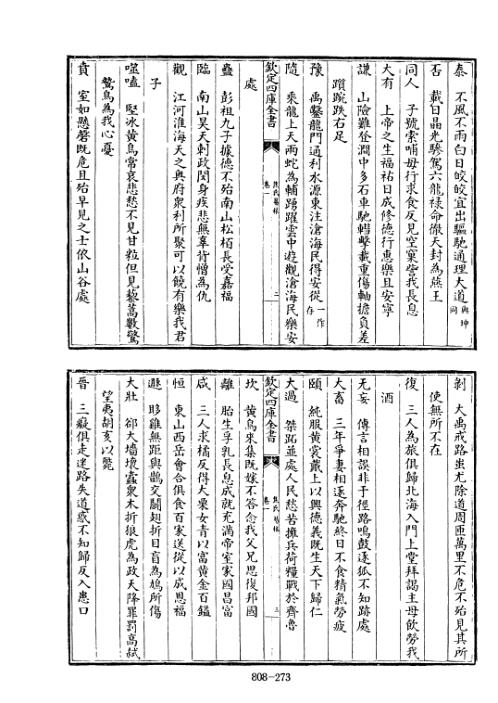 泰　不風不雨白日皎皎宜出驅馳通理大道與坤同
否　載日晶光驂駕六龍祿命徹天封為燕王
同人　子號索哺母行求食反見空巢訾我長息
大有　上帝之生福祐日成修德行惠樂且安寧
謙　山險難登澗中多石車馳轊擊載重傷軸擔負差
躓踠跌右足
豫　禹鑿龍門通利水源東注滄海民得安從一作存
隨　乘龍上天兩蛇為輔踴躍雲中遊觀滄海民樂安
欽定四庫全書　焦氏易林　卷一　二
處
蠱　彭祖九子據德不殆南山松栢長受嘉福
臨　南山昊天刺政閔身疾悲無辜背憎為仇
觀　江河淮海天之奧府衆利所聚可以饒有樂我君
子
噬嗑　堅冰黃鳥常哀悲愁不見甘粒但見藜蒿數驚
鷙鳥為我心憂
賁　室如懸磬既危且殆早見之士依山谷處
剝　大禹戒路蚩尤除道周匝萬里不危不殆見其所
使無所不在
復　三人為旅俱歸北海入門上堂拜謁主母飲勞我
酒
无妄　傳言相誤非于徑路鳴鼓逐狐不知跡處
大畜　三年爭妻相逐奔馳終日不食精氣勞疲
頤　純服黃裳戴上以興德義既生天下歸仁
大過　桀跖並處人民愁苦擁兵荷糧戰於齊魯
欽定四庫全書　焦氏易林　卷一　三
坎　黃鳥來集既嫁不答念我父兄思復邦國
離　胎生孚乳長息成就充滿帝室家國昌富
咸　三人求橘反得大栗女青以富黃金百鎰
恒　東山西岳會合俱食百家送從以成恩福
遯　眵雞無距與鵲交鬭翅折目盲為鳩所傷
大壯　郤大墻壞蠹衆木折狼虎為政天降罪罰高弑
望夷胡亥以斃
晉　三癡俱走迷路失道惑不知歸反入患口
808-273